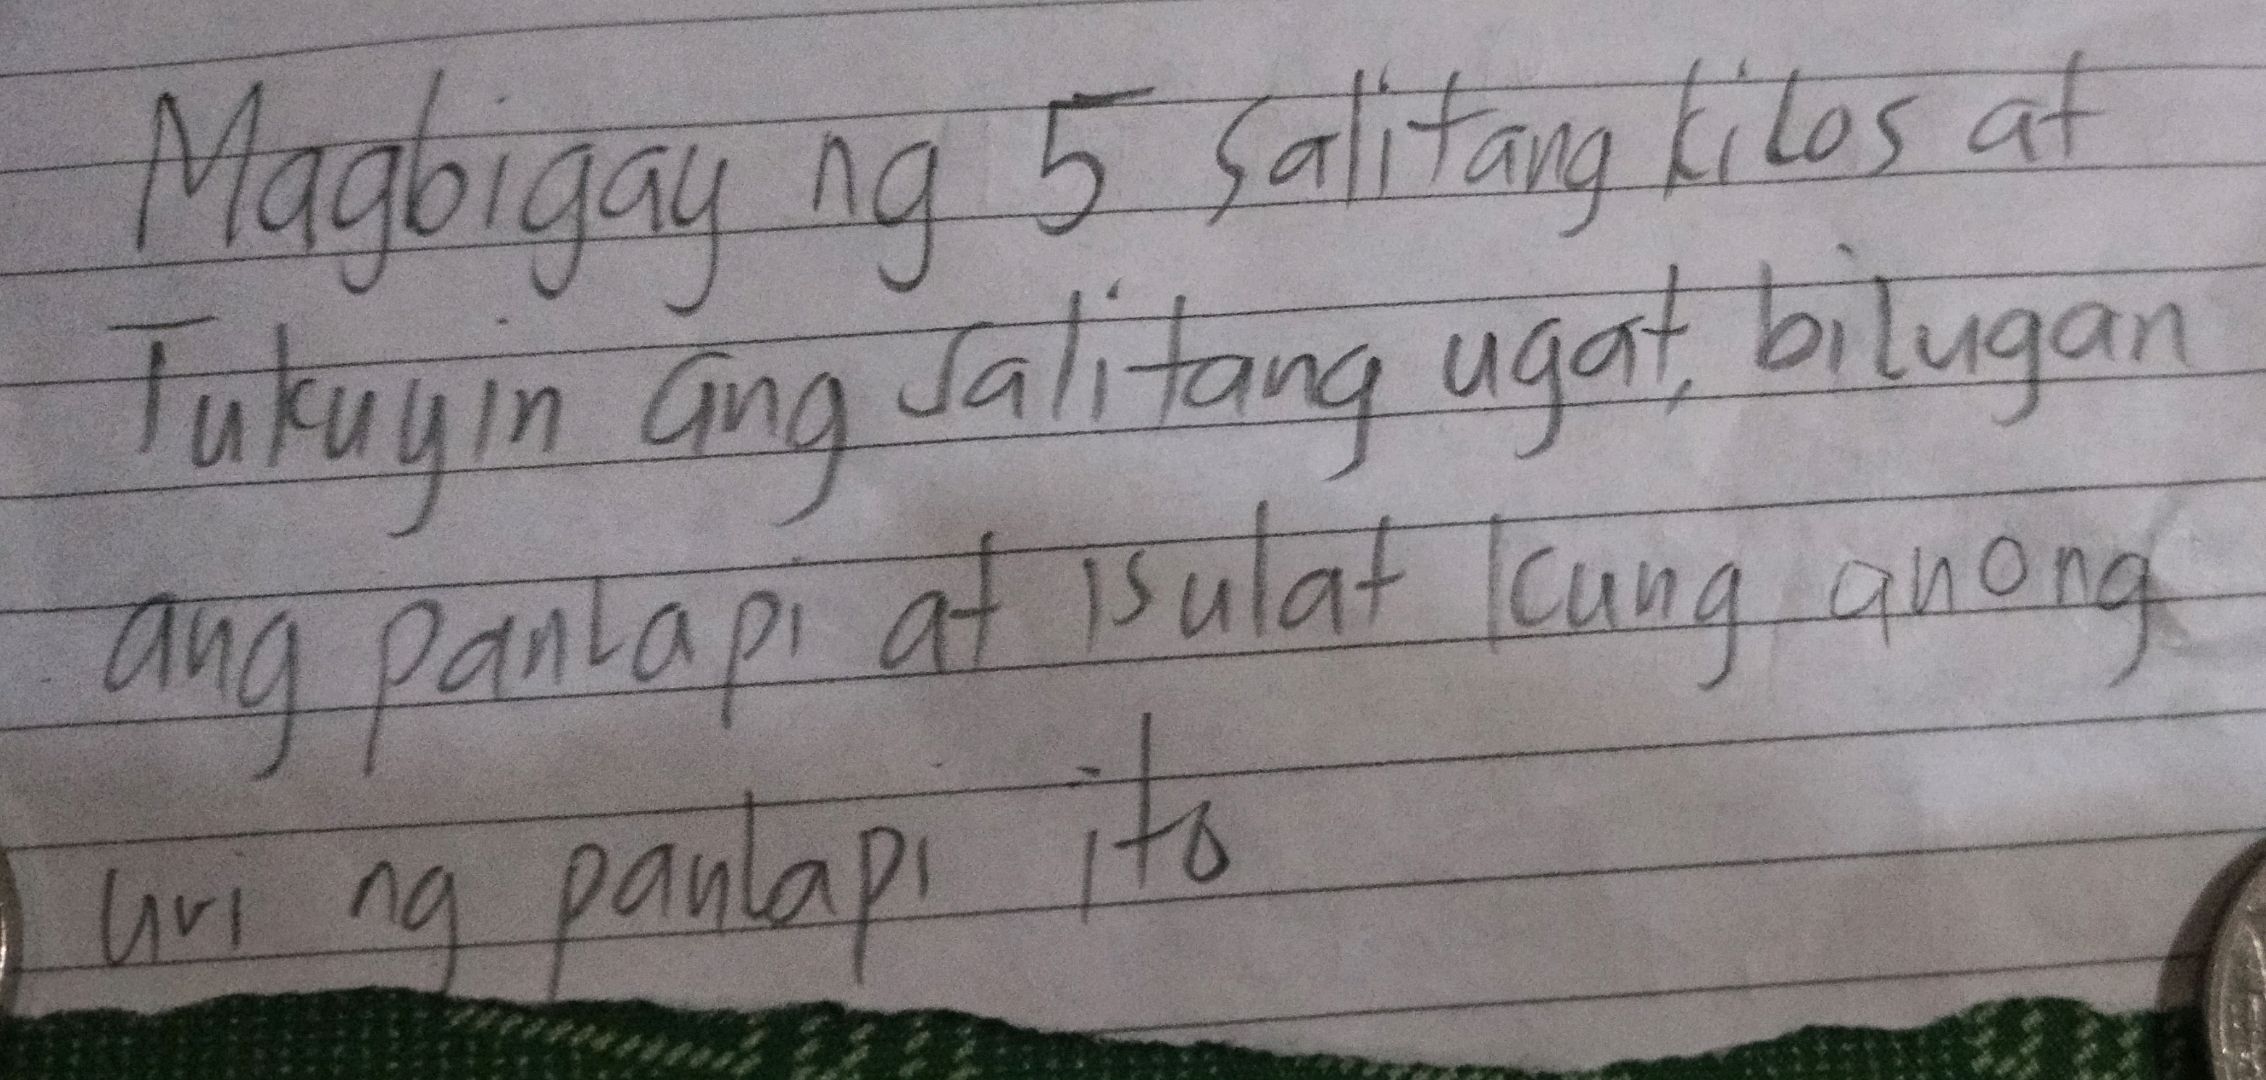 Magbigay ng 5 salitang kilos at
Tukuyin ang salitang ugat, bilugan
ang panlapi at isulat kung anong
uri ng panlapi ito